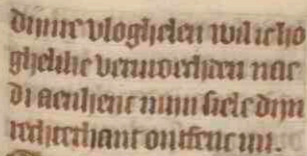 dinre vloghelen wil ic ho
ghelike verwecken nac
di aenhenc mijn siele dijn
rechterhant ontfenc mi.